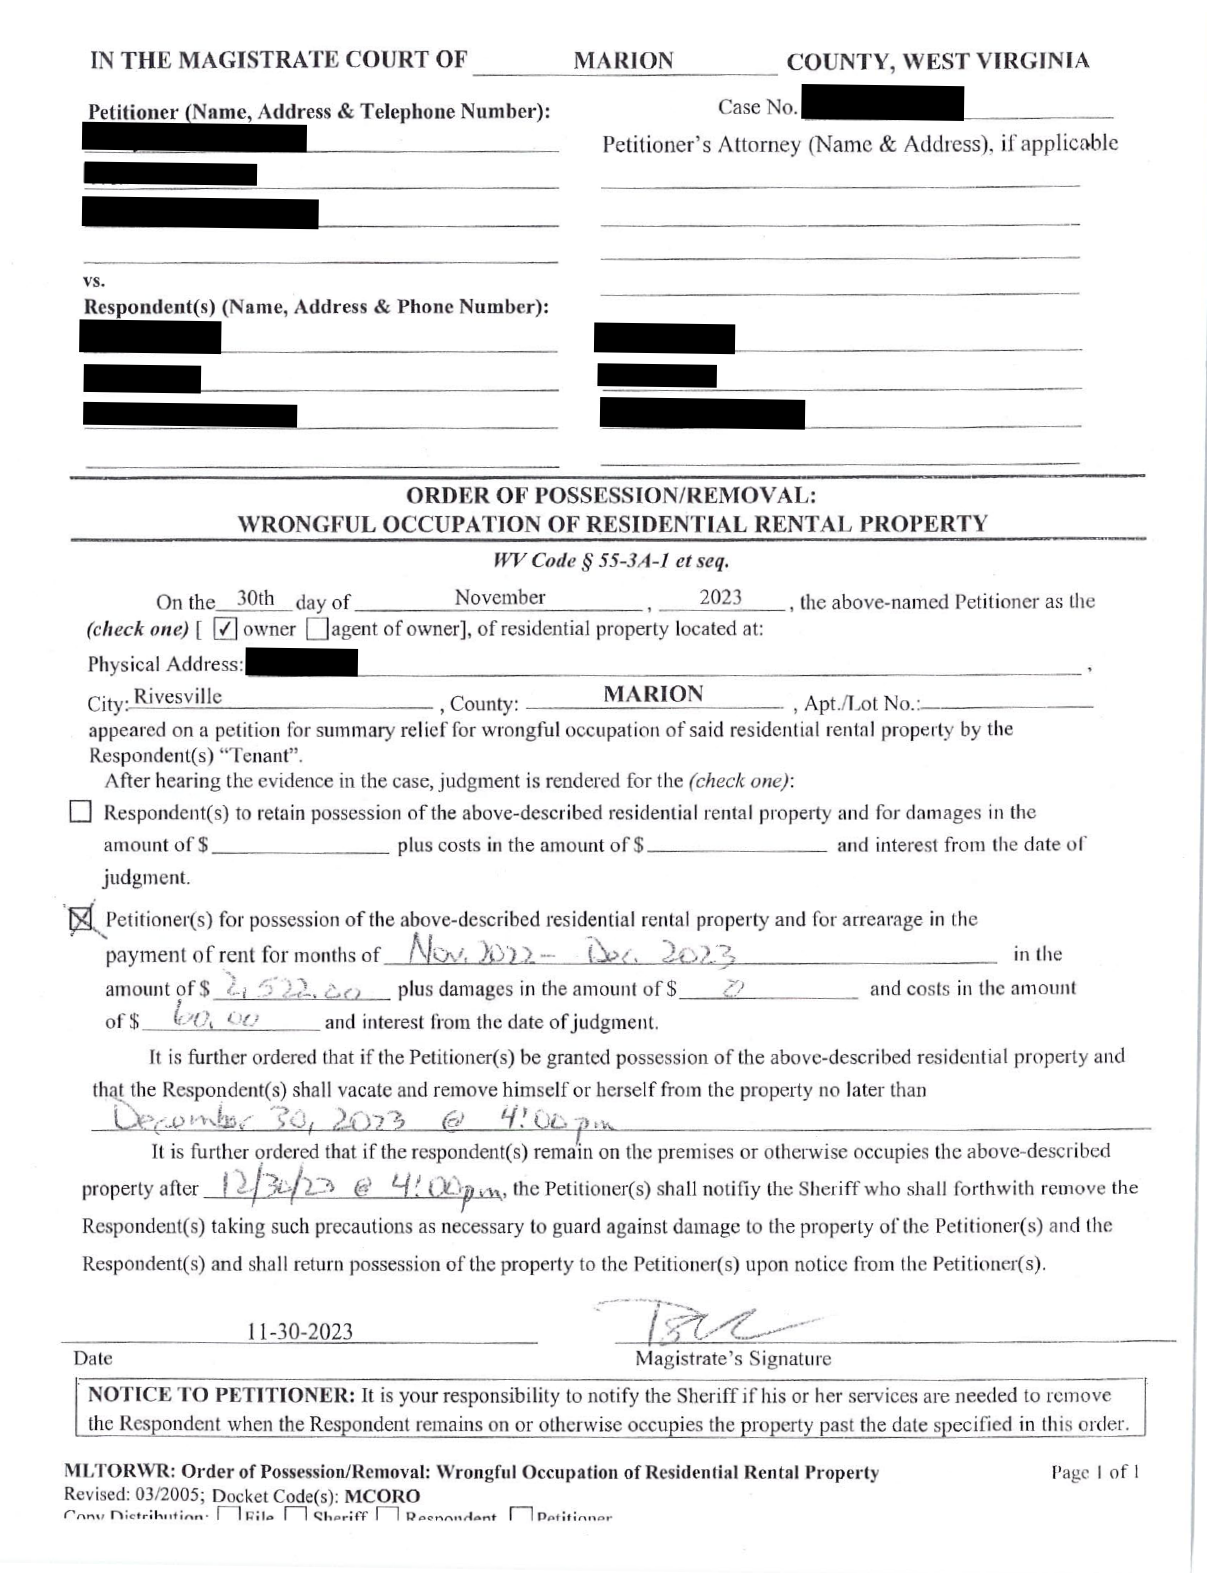 IN THE MAGISTRATE COURT OF MARION COUNTY, WEST VIRGINIA
Petitioner (Name, Address & Telephone Number):
Case No.
Petitioner's Attorney (Name & Address), if applicable
vs.
Respondent(s) (Name, Address & Phone Number):
ORDER OF POSSESSION/REMOVAL:
WRONGFUL OCCUPATION OF RESIDENTIAL RENTAL PROPERTY
WV Code § 55-3A-1 et seq.
On the 30th day of November, 2023, the above-named Petitioner as the
(check one) [ ✓ owner agent of owner], of residential property located at:
Physical Address: ,
City: Rivesville, County: MARION, Apt./Lot No.:
appeared on a petition for summary relief for wrongful occupation of said residential rental property by the
Respondent(s) "Tenant".
After hearing the evidence in the case, judgment is rendered for the (check one):
Respondent(s) to retain possession of the above-described residential rental property and for damages in the
amount of $ plus costs in the amount of $ and interest from the date of
judgment.
Petitioner(s) for possession of the above-described residential rental property and for arrearage in the
payment of rent for months of Nov. 2022 - Dec. 2023 in the
amount of $ 2,522.00 plus damages in the amount of $ 0 and costs in the amount
of $ 60.00 and interest from the date of judgment.
It is further ordered that if the Petitioner(s) be granted possession of the above-described residential property and
that the Respondent(s) shall vacate and remove himself or herself from the property no later than
December 30, 2023 @ 4:00 pm
It is further ordered that if the respondent(s) remain on the premises or otherwise occupies the above-described
property after 12/30/23 @ 4:00pm, the Petitioner(s) shall notifiy the Sheriff who shall forthwith remove the
Respondent(s) taking such precautions as necessary to guard against damage to the property of the Petitioner(s) and the
Respondent(s) and shall return possession of the property to the Petitioner(s) upon notice from the Petitioner(s).
11-30-2023
Date
Magistrate's Signature
NOTICE TO PETITIONER: It is your responsibility to notify the Sheriff if his or her services are needed to remove
the Respondent when the Respondent remains on or otherwise occupies the property past the date specified in this order.
MLTORWR: Order of Possession/Removal: Wrongful Occupation of Residential Rental Property
Page 1 of 1
Revised: 03/2005; Docket Code(s): MCORO
Copy Distribution: File Sheriff Respondent Petitioner